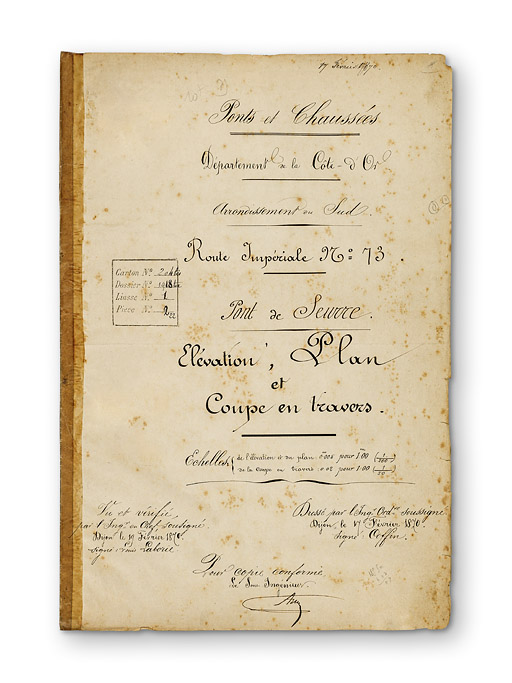 17 Février 1870
Ponts et Chaussées
Département de la Côte-d'Or
Arrondissement du Sud.
Route Impériale No. 73.
Pont de Seurre.
Elévation, Plan
et
Coupe en travers.
Carton No.
Dossier No.
Liasse No. 1
Pièce No.
Echelles de l'élévation et du plan 0.005 pour 1.00 (1/200)
de la Coupe en travers 0.05 pour 1.00 (1/20)
Vu et vérifié
par l'Ingr. en Chef, soussigné
Dijon, le 19 Février 1870.
signé
Dressé par l'Ingr. Ordre. soussigné
Dijon le 17 Février 1870.
signé
Pour copie conforme
Le Sous Ingénieur